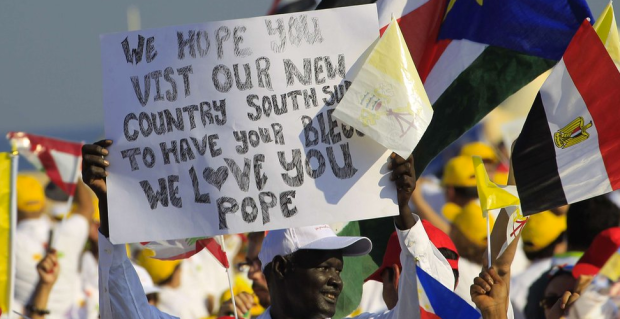 WE HOPE YOU
VIST OUR NEW
COUNTRY SOUTH
TO HAVE YOUR
WE LOVE YOU
POPE